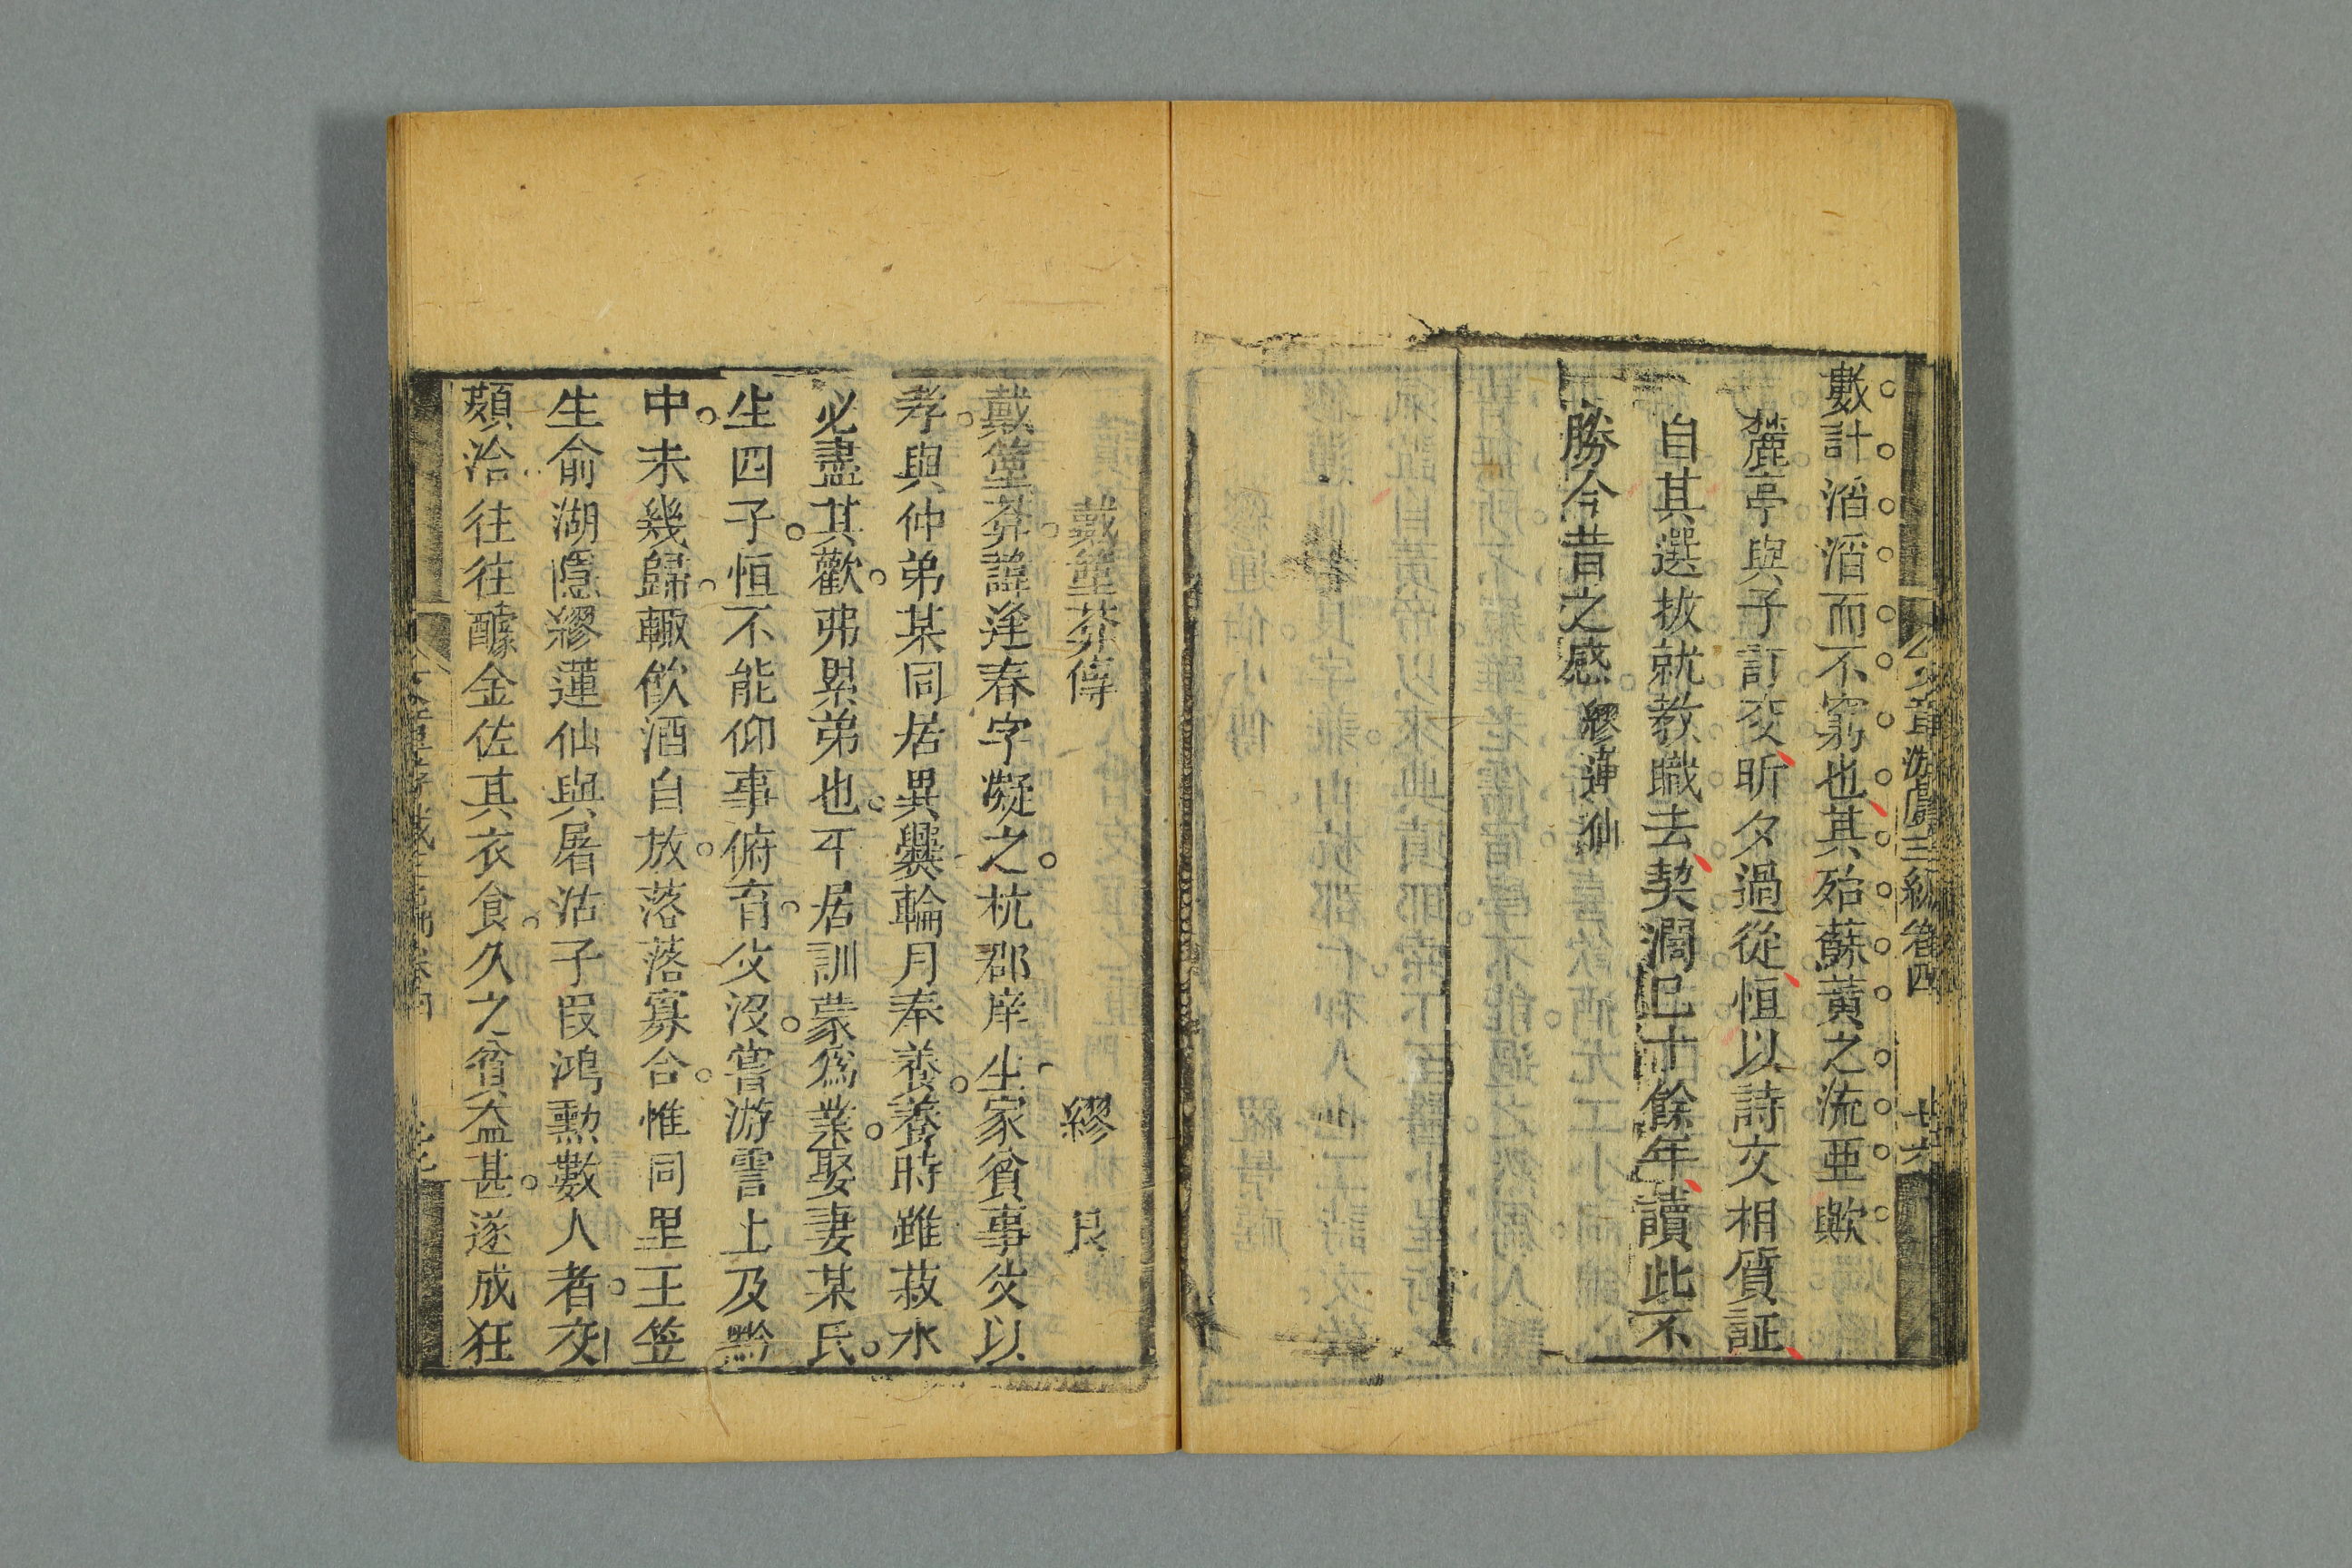 文章游戲三編卷四 廿六
數計滔滔而不窮也其殆蘇黃之流亞歟
麓亭與予訂交昕夕過從恒以詩文相質証
自其選拔就教職去契濶已十餘年讀此不
勝今昔之感 繆蓮仙
戴篁莽傳 繆艮
戴篁莽諱逢春字凝之杭郡庠生家貧事父以
孝與仲弟某同居異爨輪月奉養養時雖菽水
必盡其歡弗累弟也平居訓蒙爲業娶妻某氏
生四子恒不能仰事俯育父沒嘗游霅上及黔
中未幾歸輙飲酒自放落落寡合惟同里王笠
生俞湖隱繆蓮仙與屠沽子叚鴻勳數人者交
頗洽往往醵金佐其衣食久之貧益甚遂成狂
文章游戲三編卷四